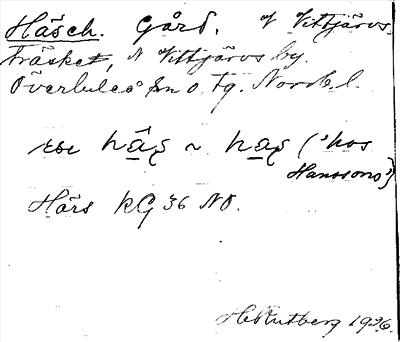 Häsch. Gård, V Vittjärvs
träsket, N Vittjärvs by.
Överluleå sn o. tg. Norrb. l.
hâ̱ʂ ~ ha̱ʂ ('hos
Hanssons')
Härs kG 36 NO.
H. Rutberg 1936.